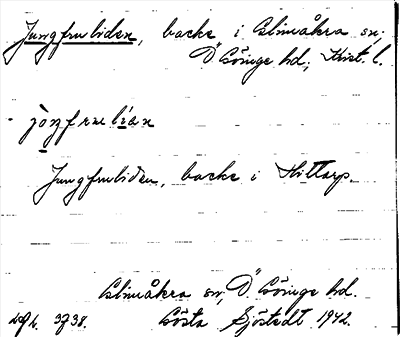 Jungfruliden, backe i Glimåkra sn,
Ö Göinge hd, Krist. l.
Jungfruliden, backe i Hittarp.
Glimåkra sn, Ö. Göinge hd.
3738. Gösta Sjöstedt 1942.